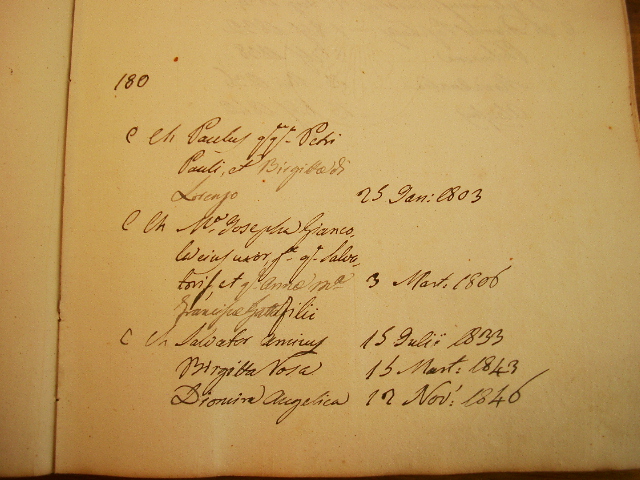 180
C Ch Paulus qm qm Petri
Pauli, et Birgittæ di
Lorenzo 25 Jan: 1803
C Ch Ma Josepha Gianco,
la ejus uxor, fa qm Salva,
toris, et qm Annæ ma 3 Mart. 1806
Franciscæ Gatt filii
C Ch Salvator Amicus 15 Julii 1833
Birgitta Rosa 15 Mart: 1843
Dionira Angelica 12 Nov: 1846